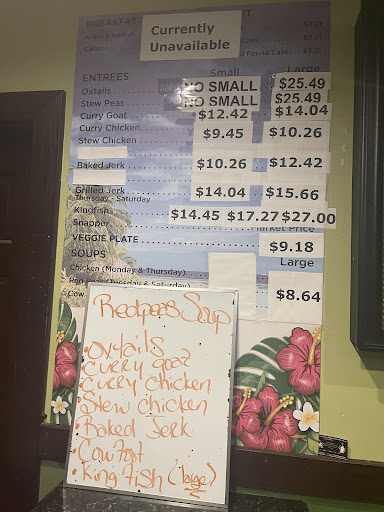 BREAKFAST
Currently
Unavailable
$3.21
$3.21
Pound Cake
ENTREES Small Large
Oxtails NO SMALL $25.49
Stew Peas NO SMALL $25.49
Curry Goat $12.42 $14.04
Curry Chicken $9.45 $10.26
Stew Chicken
Baked Jerk $10.26 $12.42
Grilled Jerk $14.04 $15.66
Thursday - Saturday
Kingfish $14.45 $17.27 $27.00
Snapper Market Price
VEGGIE PLATE $9.18
SOUPS Large
Chicken (Monday & Thursday)
Red Peas (Tuesday & Saturday) $8.64
Cow
Redpeas Soup
• Oxtails
• Curry goat
• Curry chicken
• Stew chicken
• Baked Jerk
• Cow foot
• King fish (large)